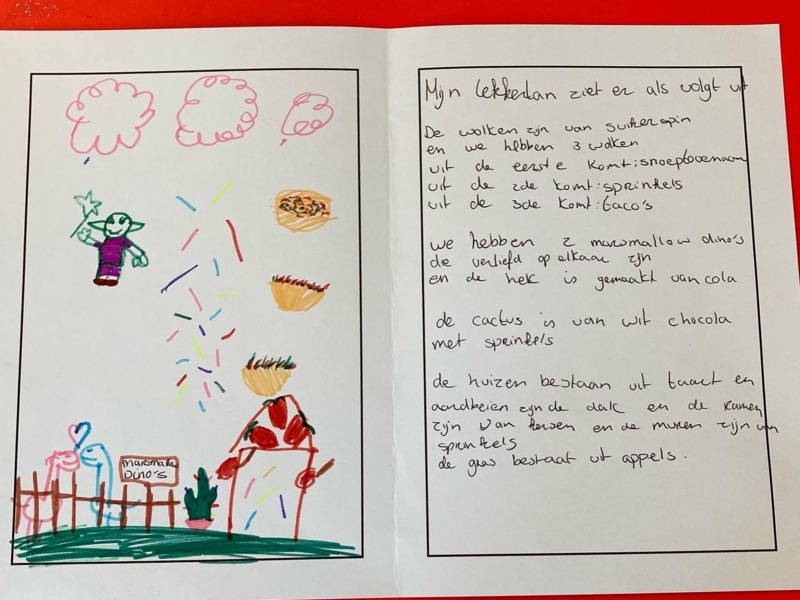 marsmallow
Dino's
Mijn lekkerlan ziet er als volgt uit
De wolken zijn van suikerspin
en we hebben 3 wolken
uit de eerste komt: snoeptovenaar
uit de 2de komt: sprinkels
uit de 3de komt: taco's
we hebben 2 marsmallow dino's
die verliefd op elkaar zijn
en de hek is gemaakt van cola
de cactus is van wit chocola
met sprinkels
de huizen bestaan uit taart en
aardbeien zijn de dak en de ramen
zijn van kersen en de muren zijn van
sprinkels
de gras bestaat uit appels.